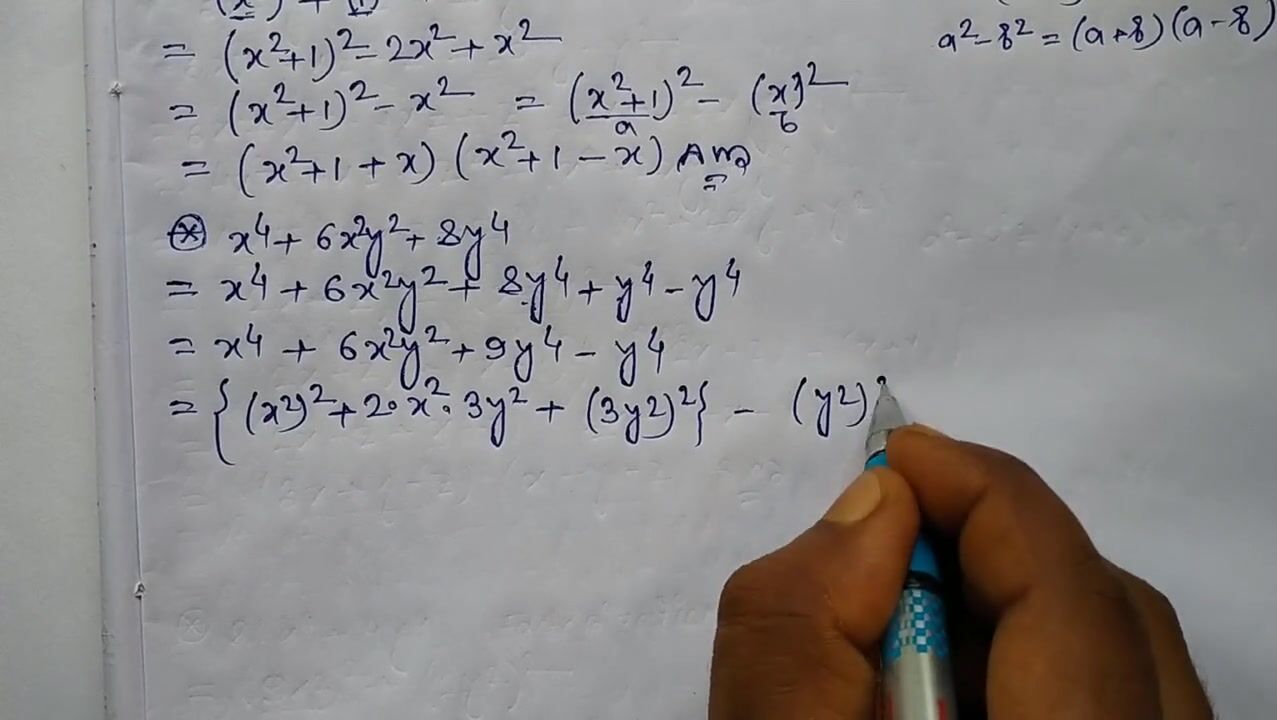 = (x²+1)² - 2x² + x²
a² - b² = (a+b)(a-b)
= (x²+1)² - x² = (x²+1)² - (x)²
a b
= (x²+1+x) (x²+1-x) Ans
⊛ x⁴ + 6x²y² + 8y⁴
= x⁴ + 6x²y² + 8y⁴ + y⁴ - y⁴
= x⁴ + 6x²y² + 9y⁴ - y⁴
= {(x²)² + 2·x²·3y² + (3y²)²} - (y²)²